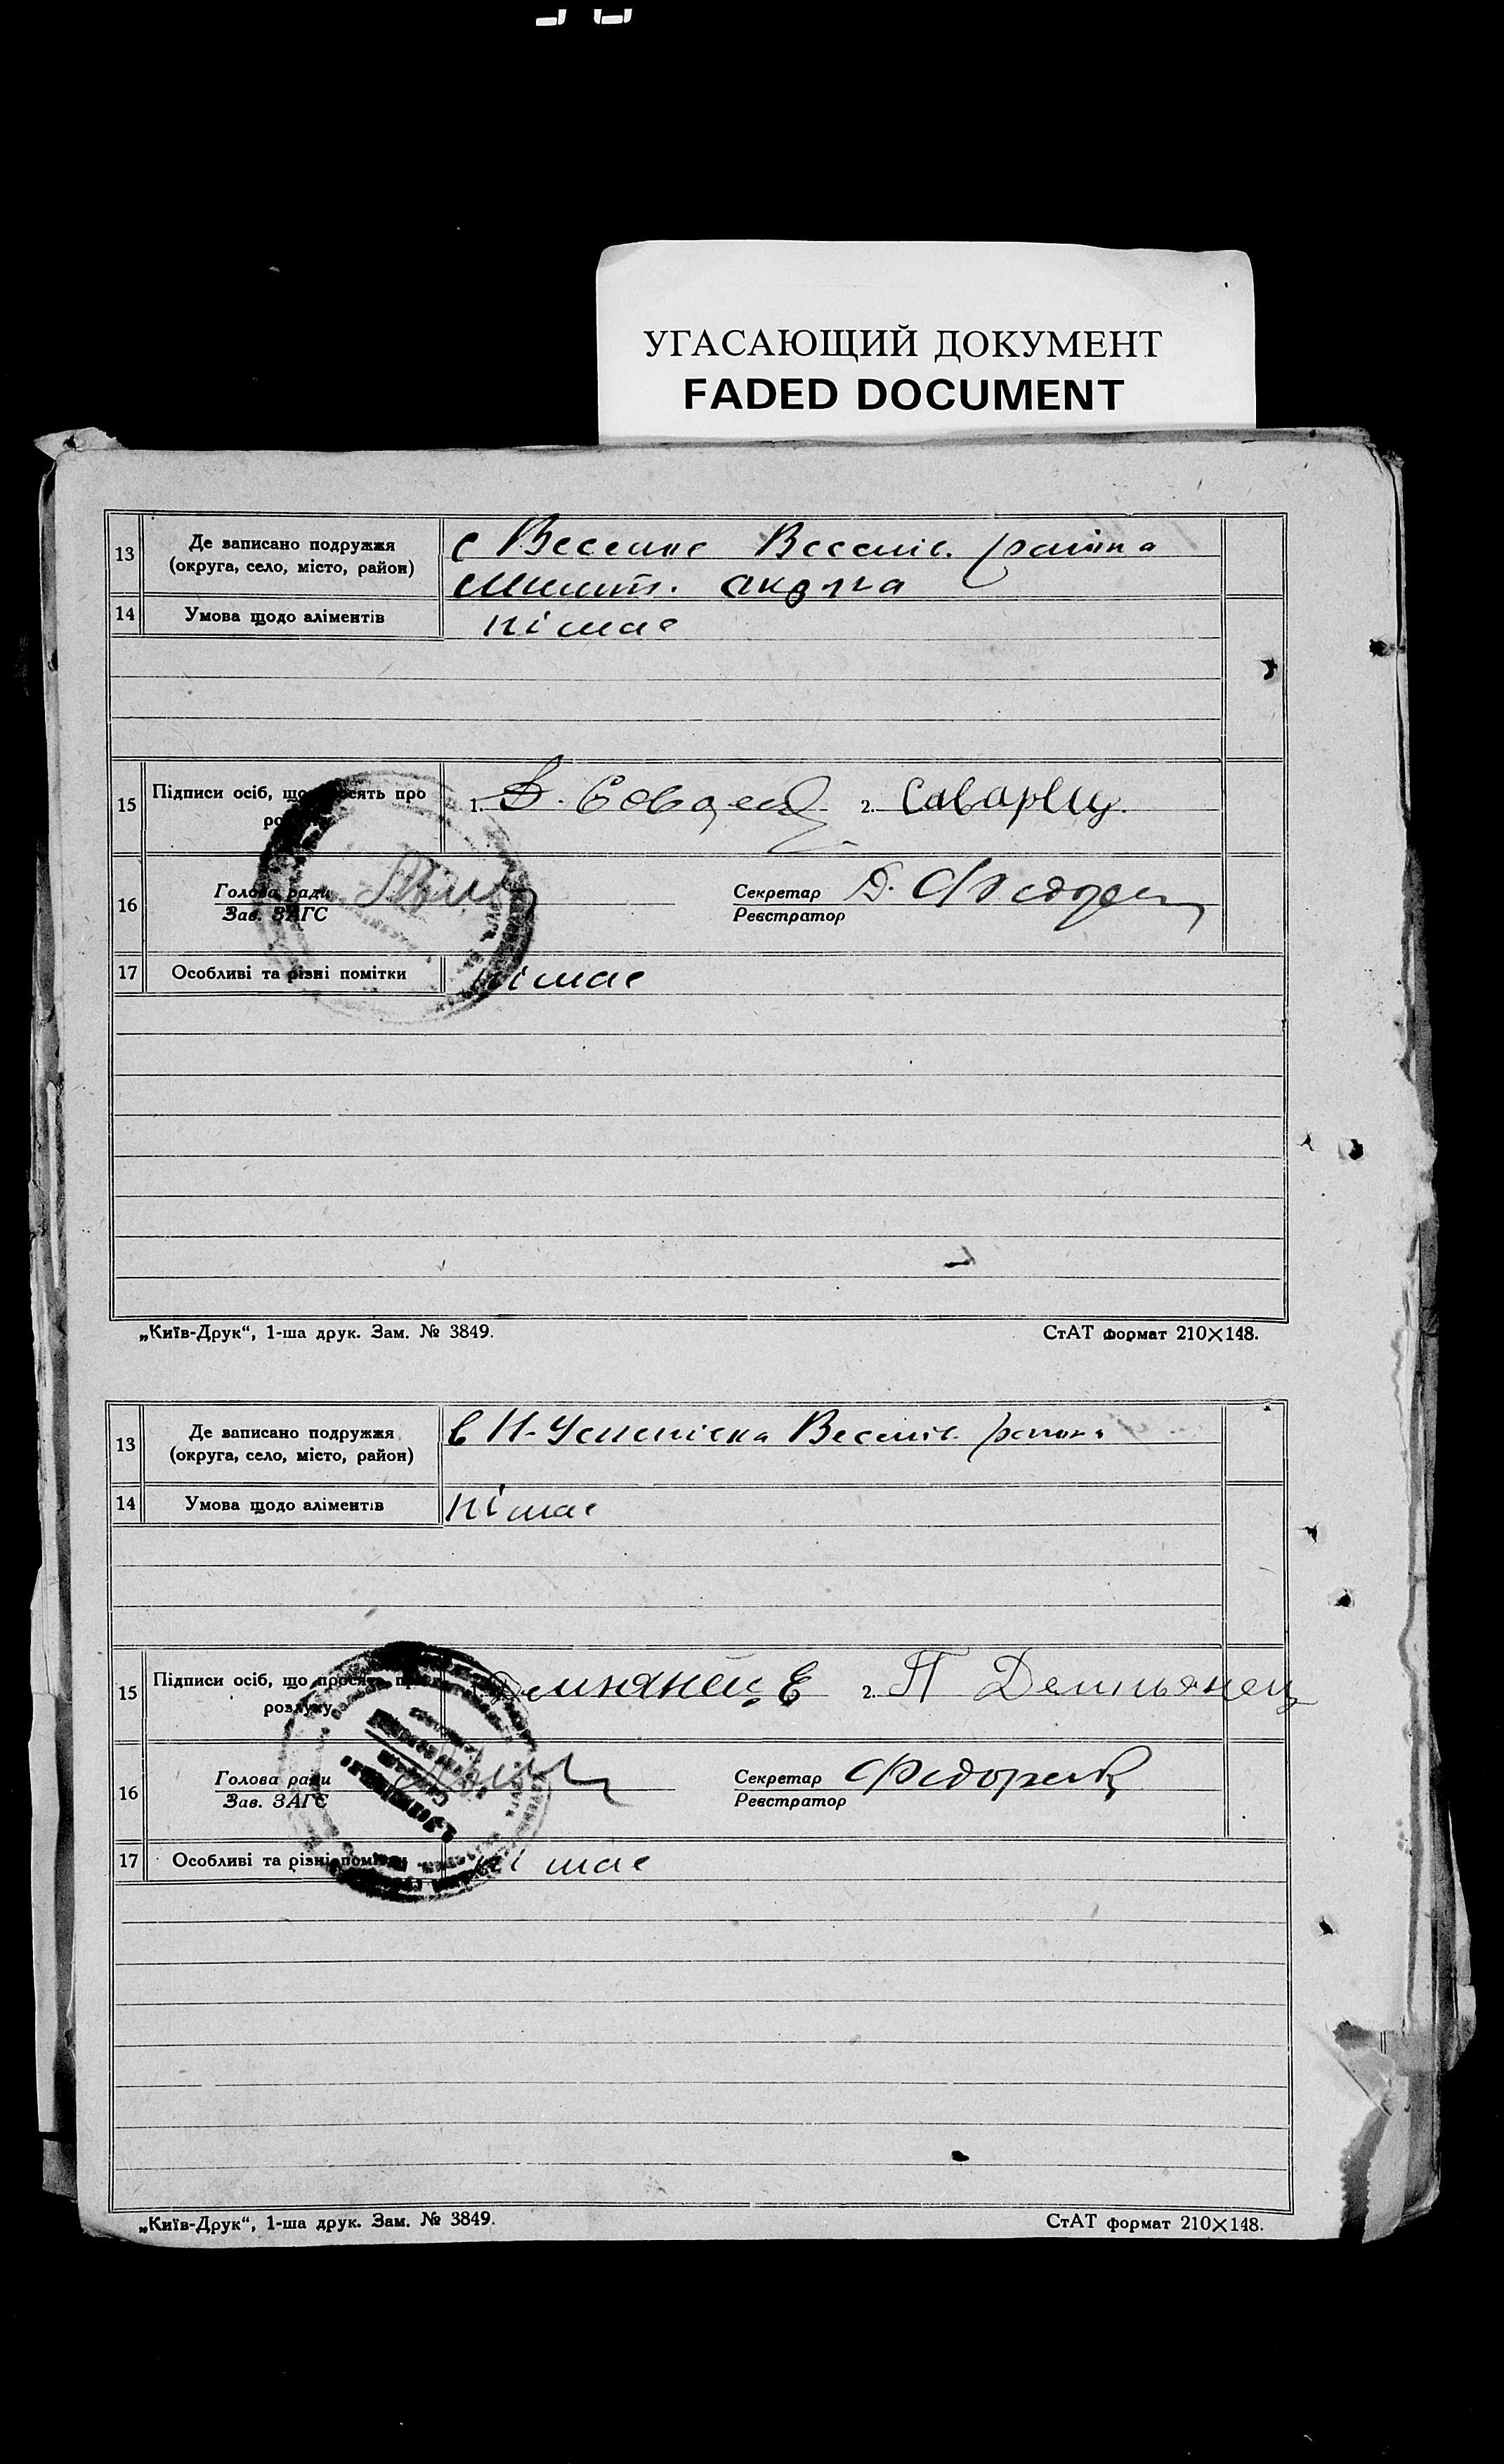 УГАСАЮЩИЙ ДОКУМЕНТ
FADED DOCUMENT
13
Де записано подружжя
(округа, село, місто, район)
с Веселе Веселів. района
Меліт. округа
14
Умова щодо аліментів
німає
15
Підписи осіб, що просять про
розлуку
1.
2.
16
Голова ради
Зав. ЗАГС
Секретар
Реєстратор
17
Особливі та різні помітки
німає
„Київ-Друк“, 1-ша друк. Зам. № 3849.
СтАТ формат 210×148.
13
Де записано подружжя
(округа, село, місто, район)
в Н-Успенівка Веселів. района
14
Умова щодо аліментів
німає
15
Підписи осіб, що просять про
розлуку
2. П Демьянец
16
Голова ради
Зав. ЗАГС
Секретар
Реєстратор
17
Особливі та різні помітки
німає
„Київ-Друк“, 1-ша друк. Зам. № 3849.
СтАТ формат 210×148.